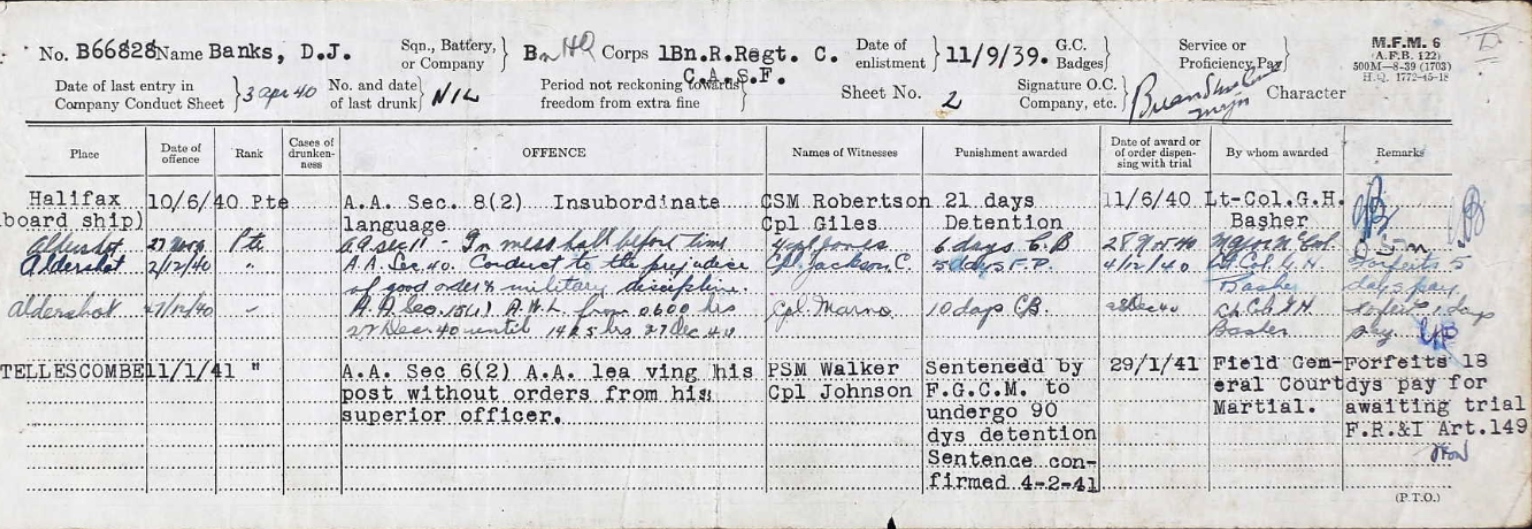 No. B66828 Name Banks, D.J. Sqn., Battery, or Company } Bn HQ Corps 1Bn.R.Regt. C. Date of enlistment } 11/9/39. G.C. Badges} Service or Proficiency Pay} M.F.M. 6
C.A.S.F. (A.F.B. 122)
500M—8-39 (1703)
H.Q. 1772-45-18
Date of last entry in Company Conduct Sheet } 3 apr 40 No. and date of last drunk } NIL Period not reckoning towards freedom from extra fine } Sheet No. 2 Signature O.C. Company, etc. } Major Character
Place Date of offence Rank Cases of drunken-ness OFFENCE Names of Witnesses Punishment awarded Date of award or of order dispen-sing with trial By whom awarded Remarks
Halifax 10/6/40 Pte A.A. Sec. 8(2) Insubordinate CSM Robertson 21 days 11/6/40 Lt-Col.G.H.
board ship) language Cpl Giles Detention Basher
Aldershot Pte A.A. Sec 11 - In mess hall before time Jones 6 days C.B 28 Nov 40
Aldershot 2/12/40 " A.A. Sec. 40. Conduct to the prejudice Cpl. Jackson C. 5 days F.P. 4/12/40 Lt. Col. G.H. Forfeits 5
of good order & military discipline. Basher days pay.
Aldershot 27/12/40 " A.A. Sec. 15(1) A.W.L. from 0600 hrs 10 days CB. 28 Dec 40 Lt. Col. G H Forfeits 1 days
27 Dec 40 until hrs 27 Dec 40 Basher pay.
TELLESCOMBE 11/1/41 " A.A. Sec 6(2) A.A. lea ving his PSM Walker Sentenced by 29/1/41 Field Gem- Forfeits 18
post without orders from his Cpl Johnson F.G.C.M. to eral Court dys pay for
superior officer. undergo 90 Martial. awaiting trial
dys detention F.R.&I Art.149
Sentence con-
firmed 4-2-41
(P.T.O.)